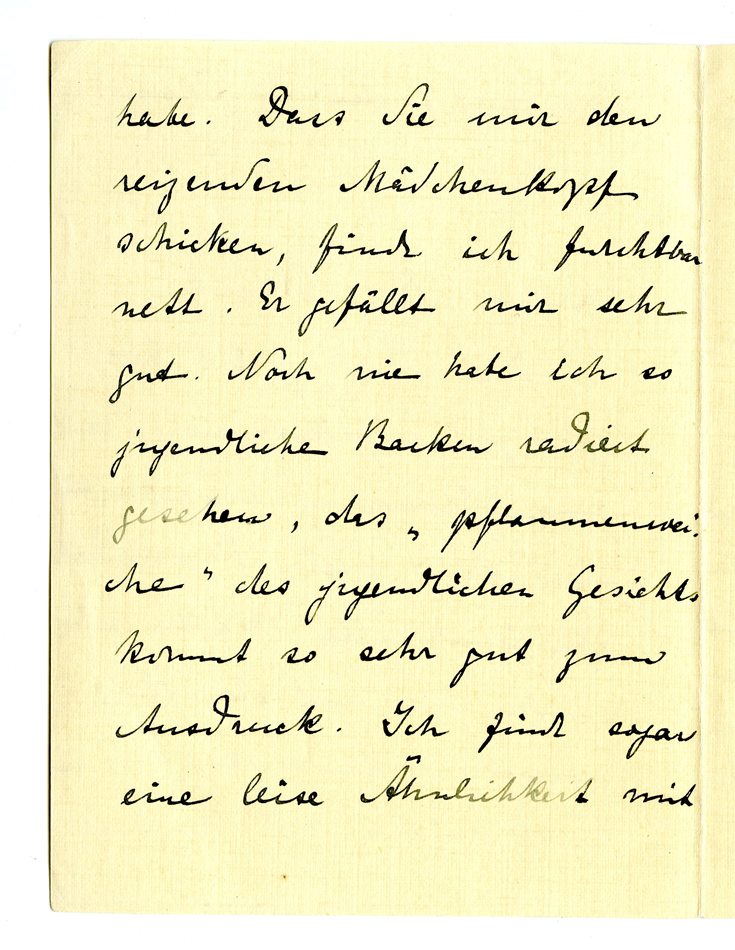 habe. Dass Sie mir den
reizenden Mädchenkopf
schicken, finde ich furchtbar
nett. Er gefällt mir sehr
gut. Noch nie habe ich so
jugendliche Backen radiert
gesehen, das „pflaumenwei-
che" des jugendlichen Gesichts
kommt so sehr gut zum
Ausdruck. Ich finde sogar
eine leise Ähnlichkeit mit